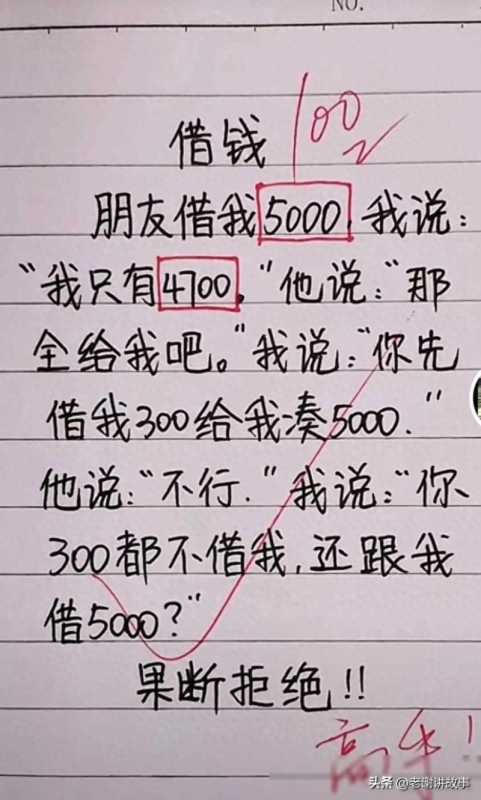 NO.
100
借钱
朋友借我5000,我说:
“我只有4700。”他说:“那
全给我吧。”我说:“你先
借我300给我凑5000.”
他说:“不行.”我说:“你
300都不借我,还跟我
借5000?”
果断拒绝!!
高手!
头条 @老谢讲故事